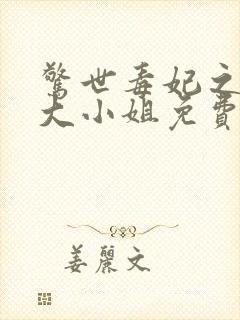 驚世毒妃之
大小姐免費
姜麗文